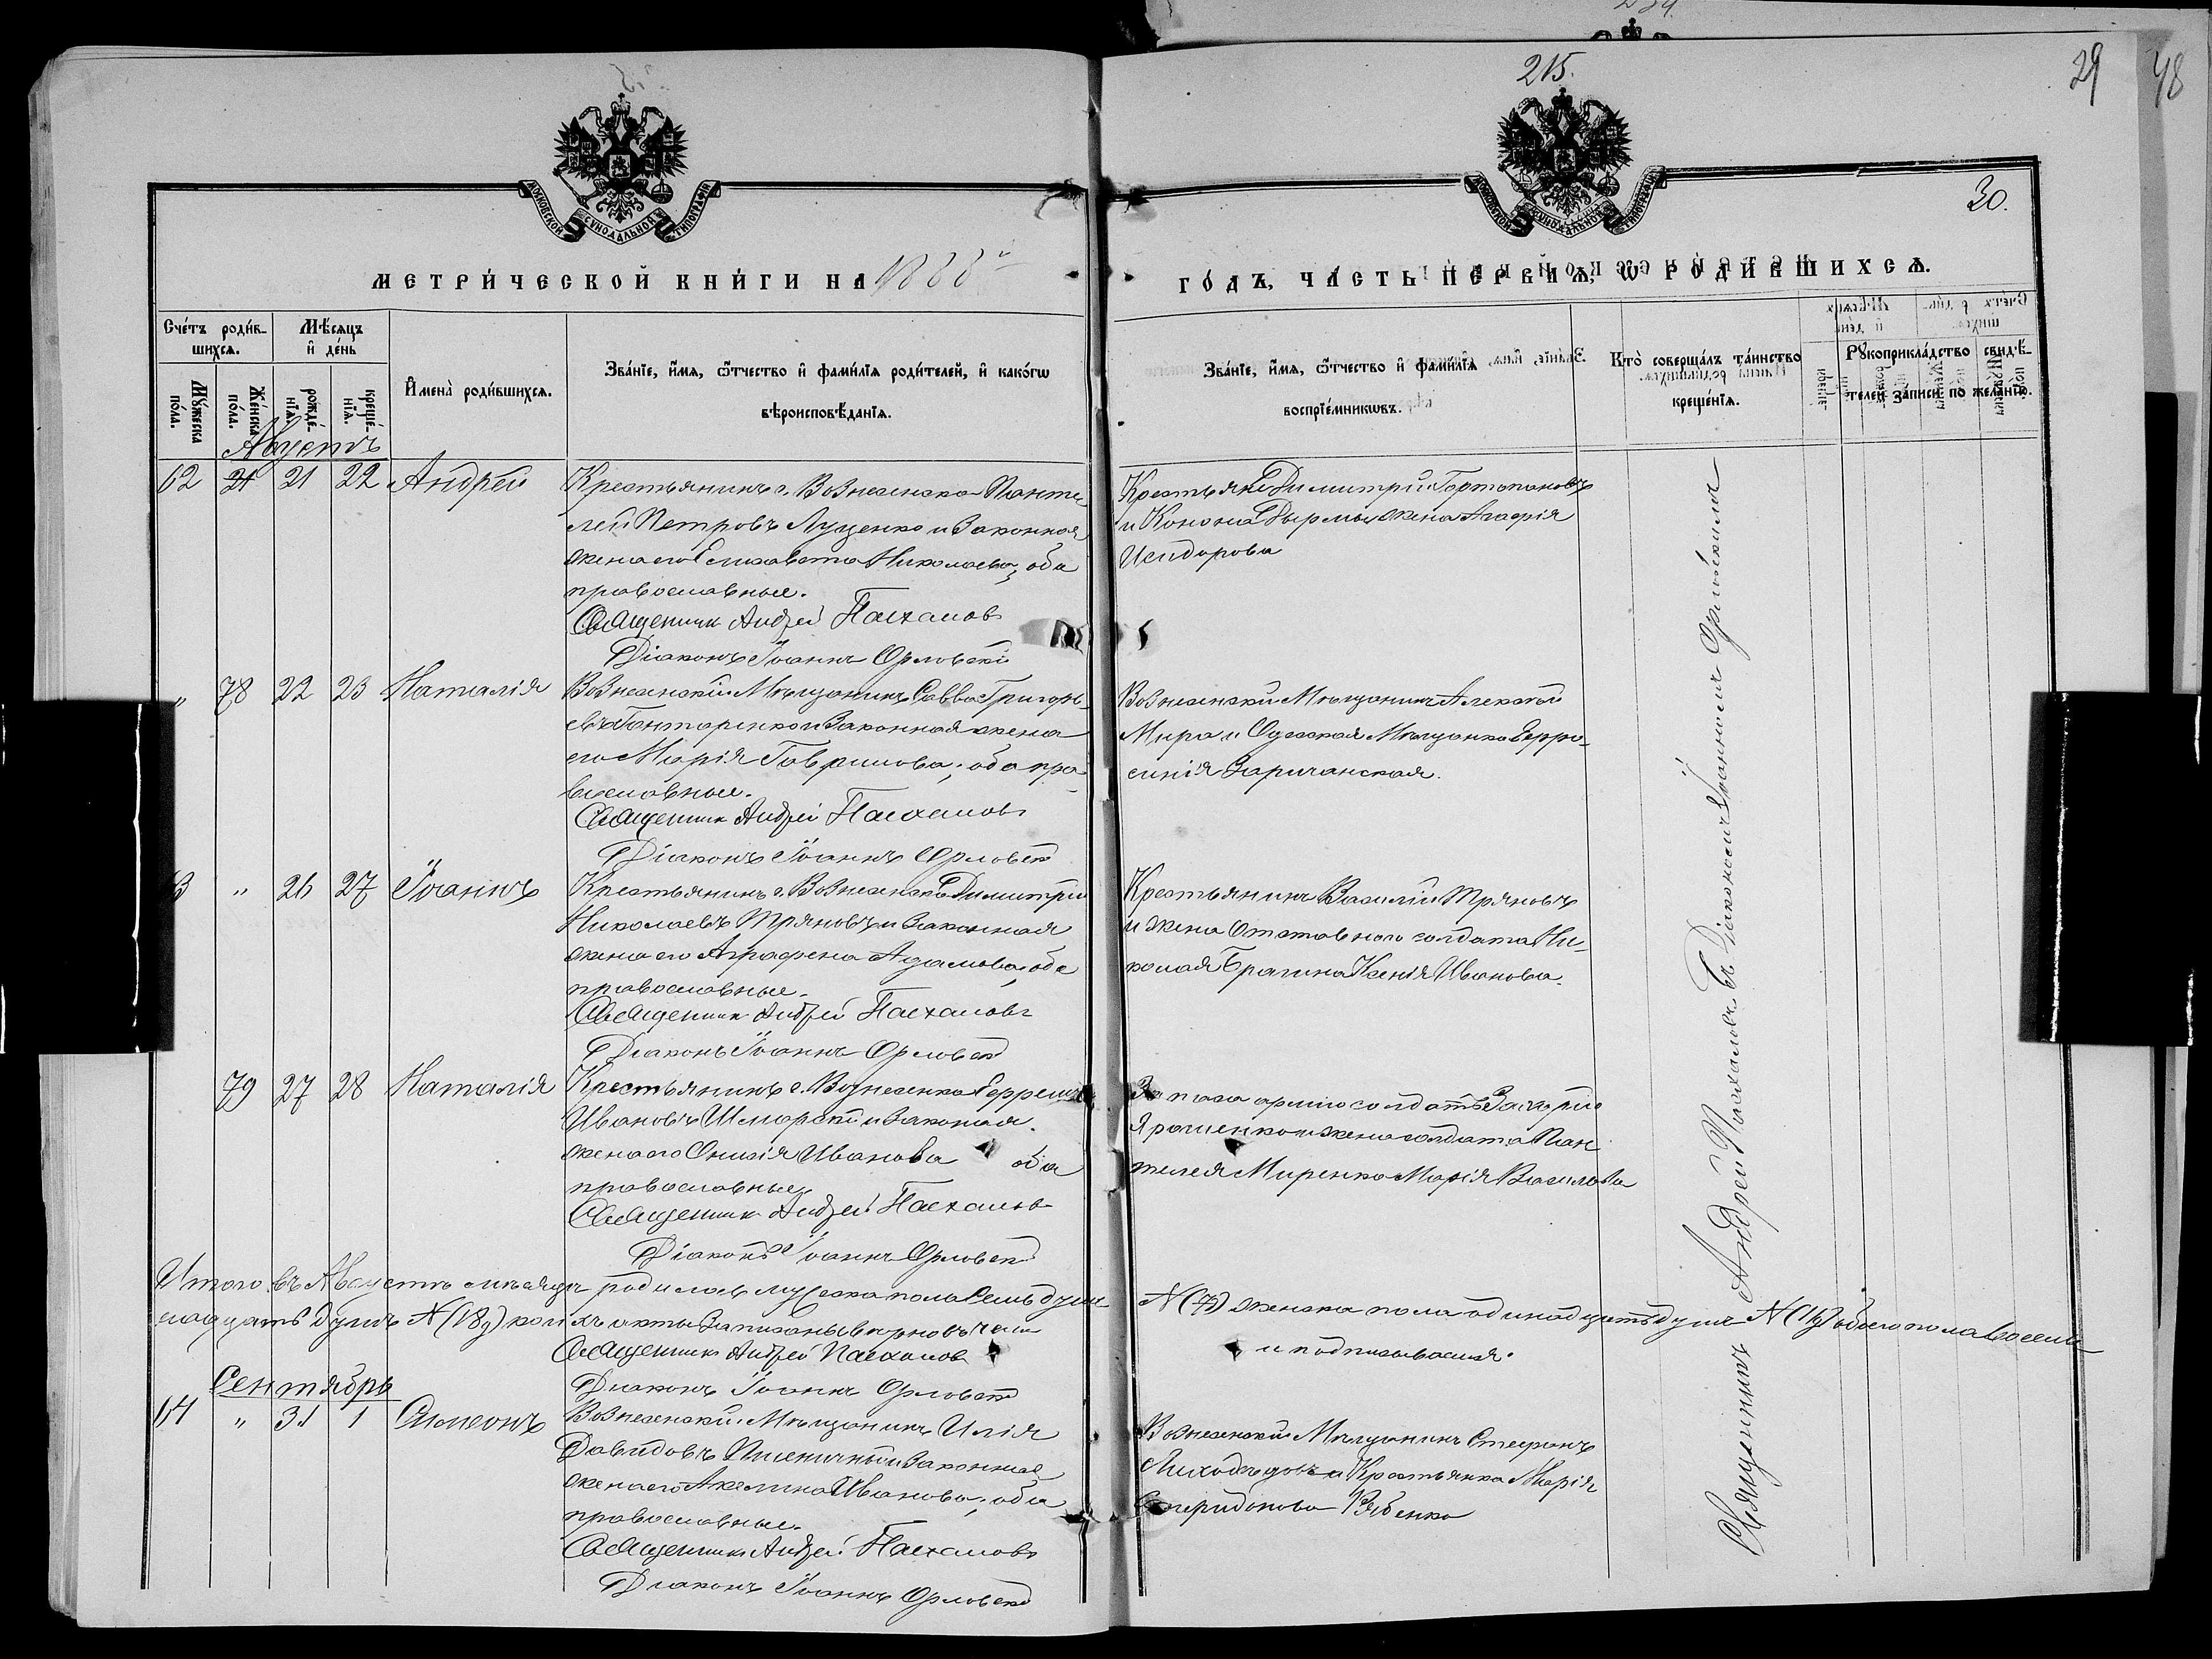 215.
29
48
30.
МОСКОВСКОЙ СѴНОДАЛЬНОЙ ТИПОГРАФІИ
МОСКОВСКОЙ СѴНОДАЛЬНОЙ ТИПОГРАФІИ
МЕТРИ́ЧЕСКОЙ КНИ́ГИ НА 1888й
ГО́ДЪ, ЧА́СТЬ ПЕ́РВАѦ, Ѡ РОДИ́ВШИХСѦ.
Сче́тъ роди́в-
шихсѧ.
Мѣ́сѧцъ
и҆ де́нь
Мꙋ́жеска
по́ла.
Же́нска
по́ла.
рожде́-
нїѧ.
креще́-
нїѧ.
И҆мена̀ роди́вшихсѧ.
Зва́нїе, и҆́мѧ, ѻ҆́тчество и҆ фами́лїѧ роди́телей, и҆ како́гѡ
вѣроисповѣ́данїѧ.
Зва́нїе, и҆́мѧ, ѻ҆́тчество и҆ фами́лїѧ
воспрїе́мникѡвъ.
Кто̀ соверша́лъ та́инство
креще́нїѧ.
Рꙋкоприкла́дство свидѣ́-
телей за́писи по жела́нїю.
Августъ
62 21 21 22 Андрей
Крестьянинъ г. Вознесенска Панте-
лей Петровъ Луценко и законная
жена его Елисавета Николаева, оба
православные.
Священникъ Андрей Пасхаловъ
Діаконъ Іоаннъ Орловскій
Крестьяне Димитрій
и Конона Дырмы жена Агафія
Исидорова
" 78 22 23 Наталія
Вознесенскій Мѣщанинъ Савва Григорь-
евъ Гонтаренко и законная жена
его Марія Гаврилова, оба пра-
вославные.
Священникъ Андрей Пасхаловъ
Діаконъ Іоаннъ Орловскій
Вознесенскій Мѣщанинъ Алексѣй
Мира и Одесская Мѣщанка Евфро-
синія Заричанская.
3 " 26 27 Іоаннъ
Крестьянинъ г. Вознесенска Димитрій
Николаевъ Тряновъ и законная
жена его Аграфена Адамова, оба
православные.
Священникъ Андрей Пасхаловъ
Діаконъ Іоаннъ Орловскій
Крестьянинъ Василій Тряновъ
и жена отставнаго солдата Ни-
колая Брагина Ксенія Иванова.
79 27 28 Наталія
Крестьянинъ г. Вознесенска
Ивановъ и законная
жена его Онисія Иванова оба
православные.
Священникъ Андрей Пасхаловъ
Діаконъ Іоаннъ Орловскій
Запаса арміи солдатъ Захарій
Ярошенко и жена солдата Пан-
телея Миренко Марія Василова
Итого въ Августѣ мѣсяцѣ родилось мужеска пола семь душъ
№ (7) женска пола одинадцать душъ № (11) обоего пола восем-
надцать душъ № (18) коихъ акты записаны
и подписываемся.
Священникъ Андрей Пасхаловъ
Діаконъ Іоаннъ Орловскій
Сентябрь
64 " 31 1 Симеонъ
Вознесенскій Мѣщанинъ Илія
Давидовъ Пшеничный и законная
жена его Акелина Иванова, оба
православные.
Священникъ Андрей Пасхаловъ
Діаконъ Іоаннъ Орловскій
Вознесенскій Мѣщанинъ Стефанъ
Лиходѣдовъ и Крестьянка Марія
Спиридонова Рябенко
Священникъ Андрей Пасхаловъ съ Діакономъ Іоанномъ Орловскимъ